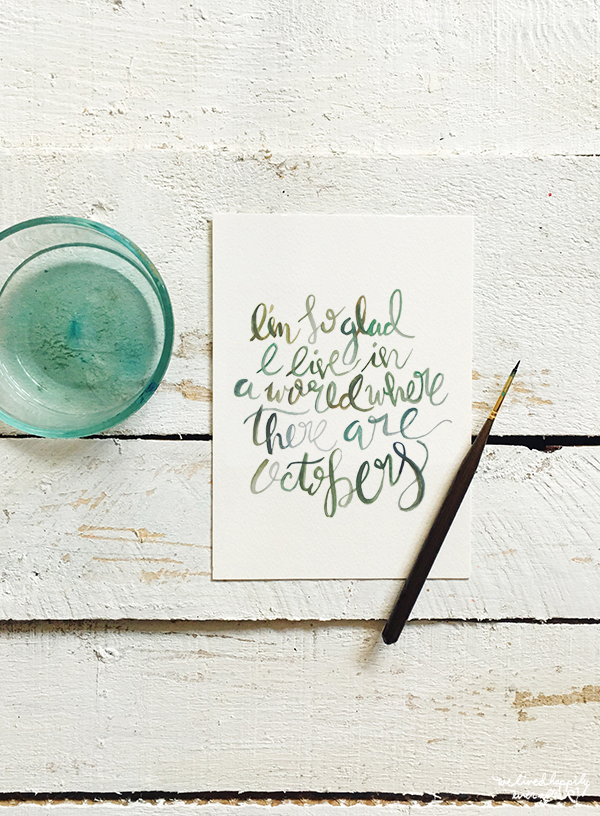 I'm so glad
I live in
a world where
there are
octobers
we lived happily
ever after